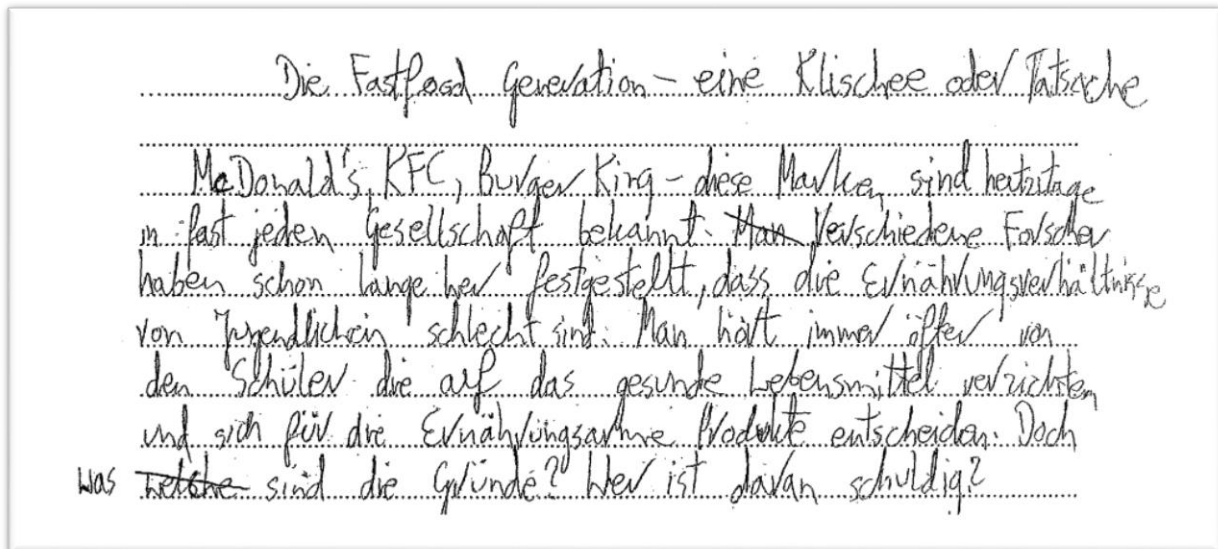 Die Fastfood Generation – eine Klischee oder Tatsache
McDonald's, KFC, Burger King – diese Marken sind heutzutage
in fast jeden Gesellschaft bekannt. Man Verschiedene Forscher
haben schon lange her festgestellt, dass die Ernährungsverhältnisse
von Jugendlichen schlecht sind. Man hört immer öfter von
den Schüler die auf das gesunde Lebensmittel verzichten
und sich für die Ernährungsarme Produkte entscheiden. Doch
was welche sind die Gründe? Wer ist daran schuldig?